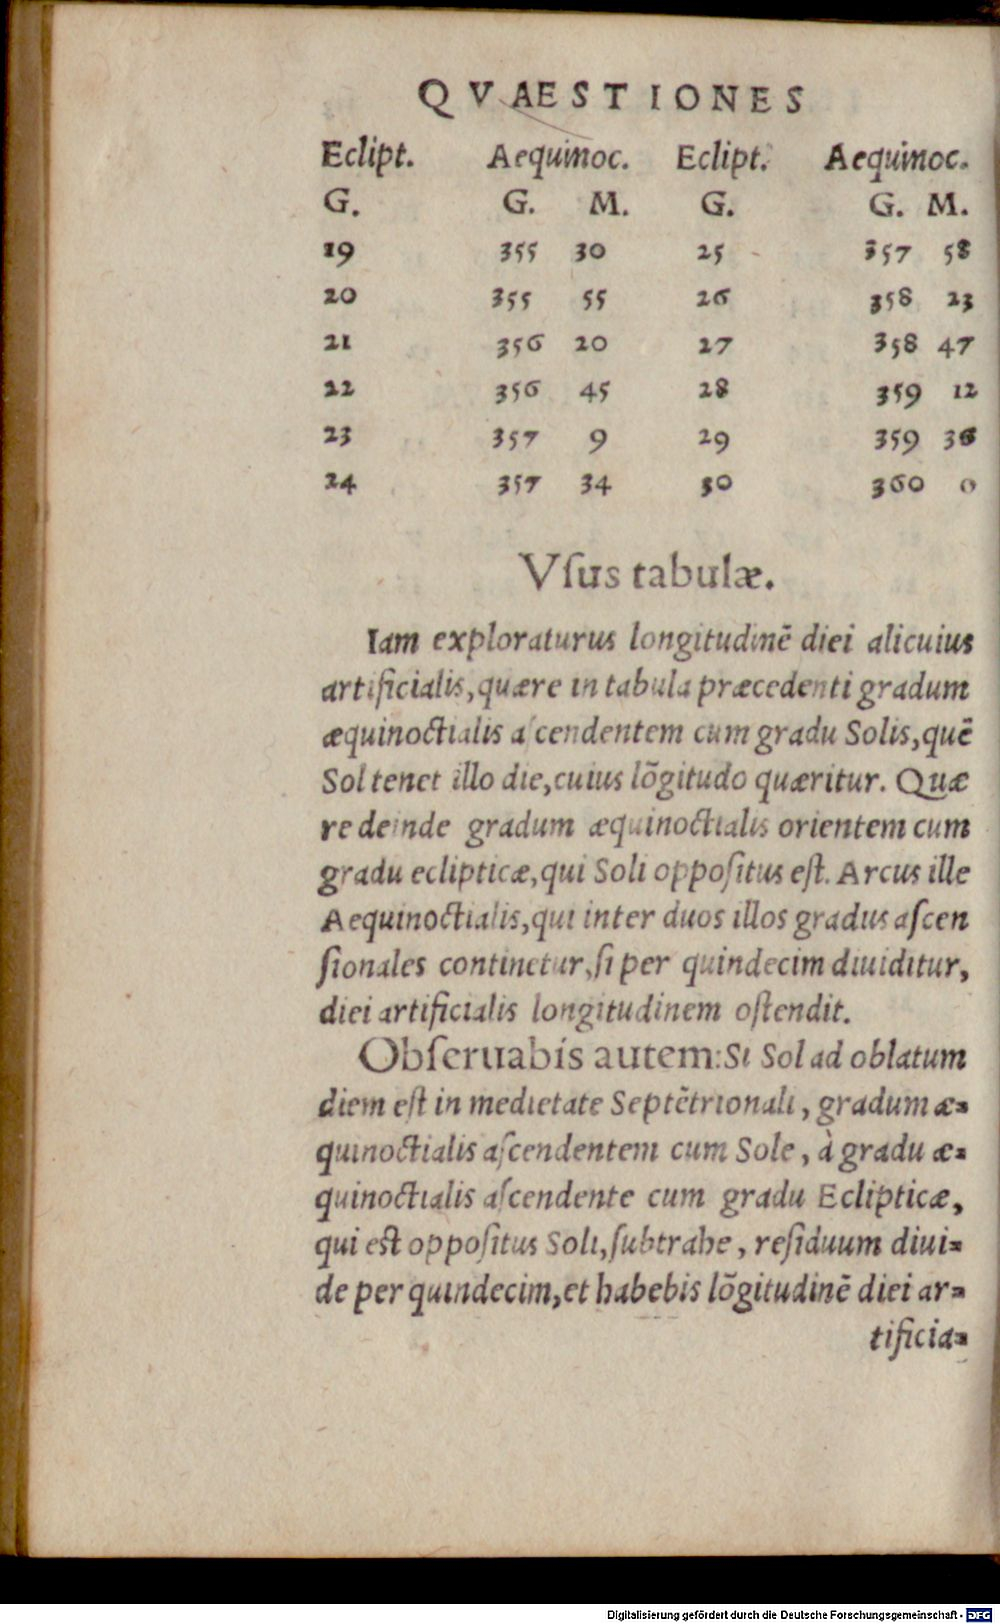 QVAESTIONES
Eclipt. Aequinoc. Eclipt. Aequinoc.
G. G. M. G. G. M.
19 355 30 25 357 58
20 355 55 26 358 23
21 356 20 27 358 47
22 356 45 28 359 12
23 357 9 29 359 36
24 357 34 30 360 0
Vſus tabulæ.
Iam exploraturus longitudinē diei alicuius
artificialis, quære in tabula præcedenti gradum
æquinoctialis aſcendentem cum gradu Solis, quē
Sol tenet illo die, cuius lōgitudo quæritur. Quæ
re deinde gradum æquinoctialis orientem cum
gradu eclipticæ, qui Soli oppoſitus eſt. Arcus ille
Aequinoctialis, qui inter duos illos gradus aſcen
ſionales continetur, ſi per quindecim diuiditur,
diei artificialis longitudinem oſtendit.
Obſeruabis autem: Si Sol ad oblatum
diem eſt in medietate Septētrionali, gradum æ=
quinoctialis aſcendentem cum Sole, à gradu æ=
quinoctialis aſcendente cum gradu Eclipticæ,
qui est oppoſitus Soli, ſubtrahe, reſiduum diui=
de per quindecim, et habebis lōgitudinē diei ar=
tificia=
Digitalisierung gefördert durch die Deutsche Forschungsgemeinschaft - DFG